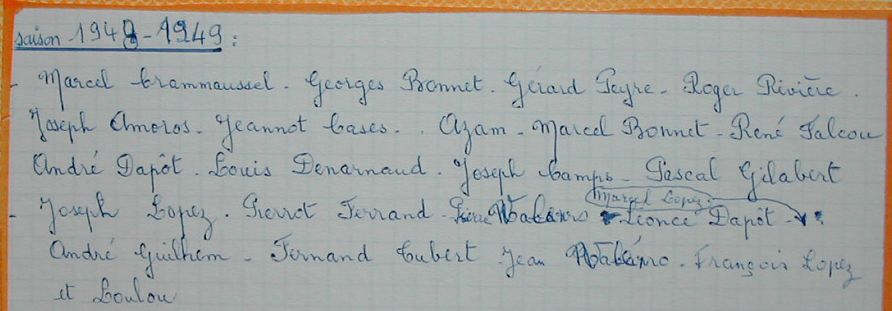 saison 1948-1949 :
- Marcel Crammaussel. Georges Bonnet. Gérard Peyre - Roger Rivière.
Joseph Amoros. Jeannot Cases. . Azam - Marcel Bonnet - René Falcou
André Dapôt. Louis Denarnaud. Joseph Campo - Pascal Gilabert
Marcel Lopez.
- Joseph Lopez. Pierrot Ferrand - Léonce Dapot -
André Guilhem - Fernand Cubert Jean - François Lopez
et Loulou